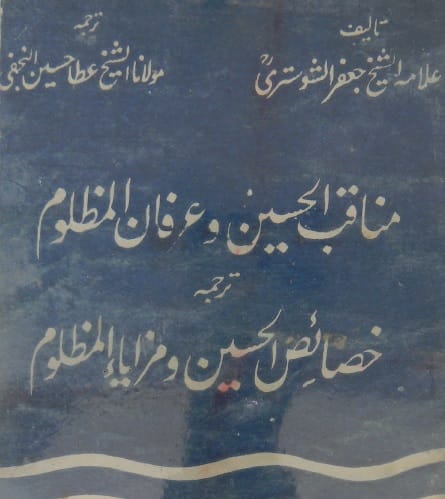 تالیف
علامہ الشیخ جعفر الشوستریؒ
ترجمہ
مولانا الشیخ عطا حسین النجفی
مناقب الحسین و عرفان المظلوم
ترجمہ
خصائص الحسین و مزایا المظلوم